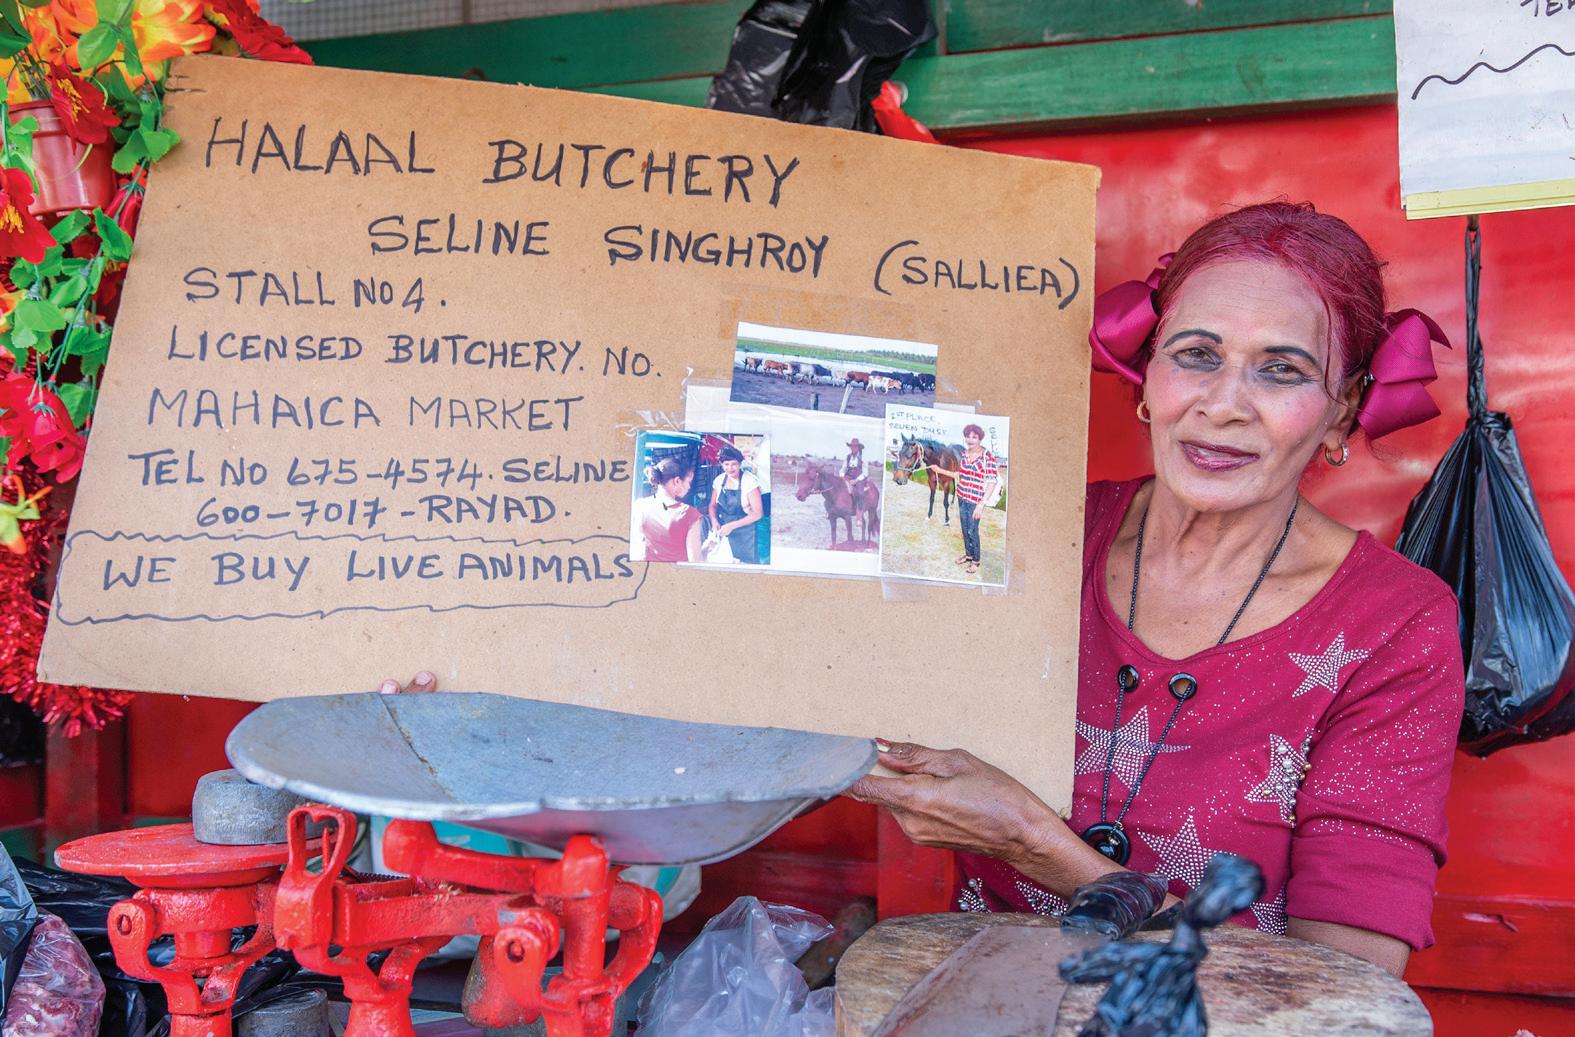 HALAAL BUTCHERY
SELINE SINGHROY (SALLIEA)
STALL NO 4.
LICENSED BUTCHERY. NO.
MAHAICA MARKET
TEL NO 675-4574. SELINE
600-7017 - RAYAD.
WE BUY LIVE ANIMALS
1ST PLACE